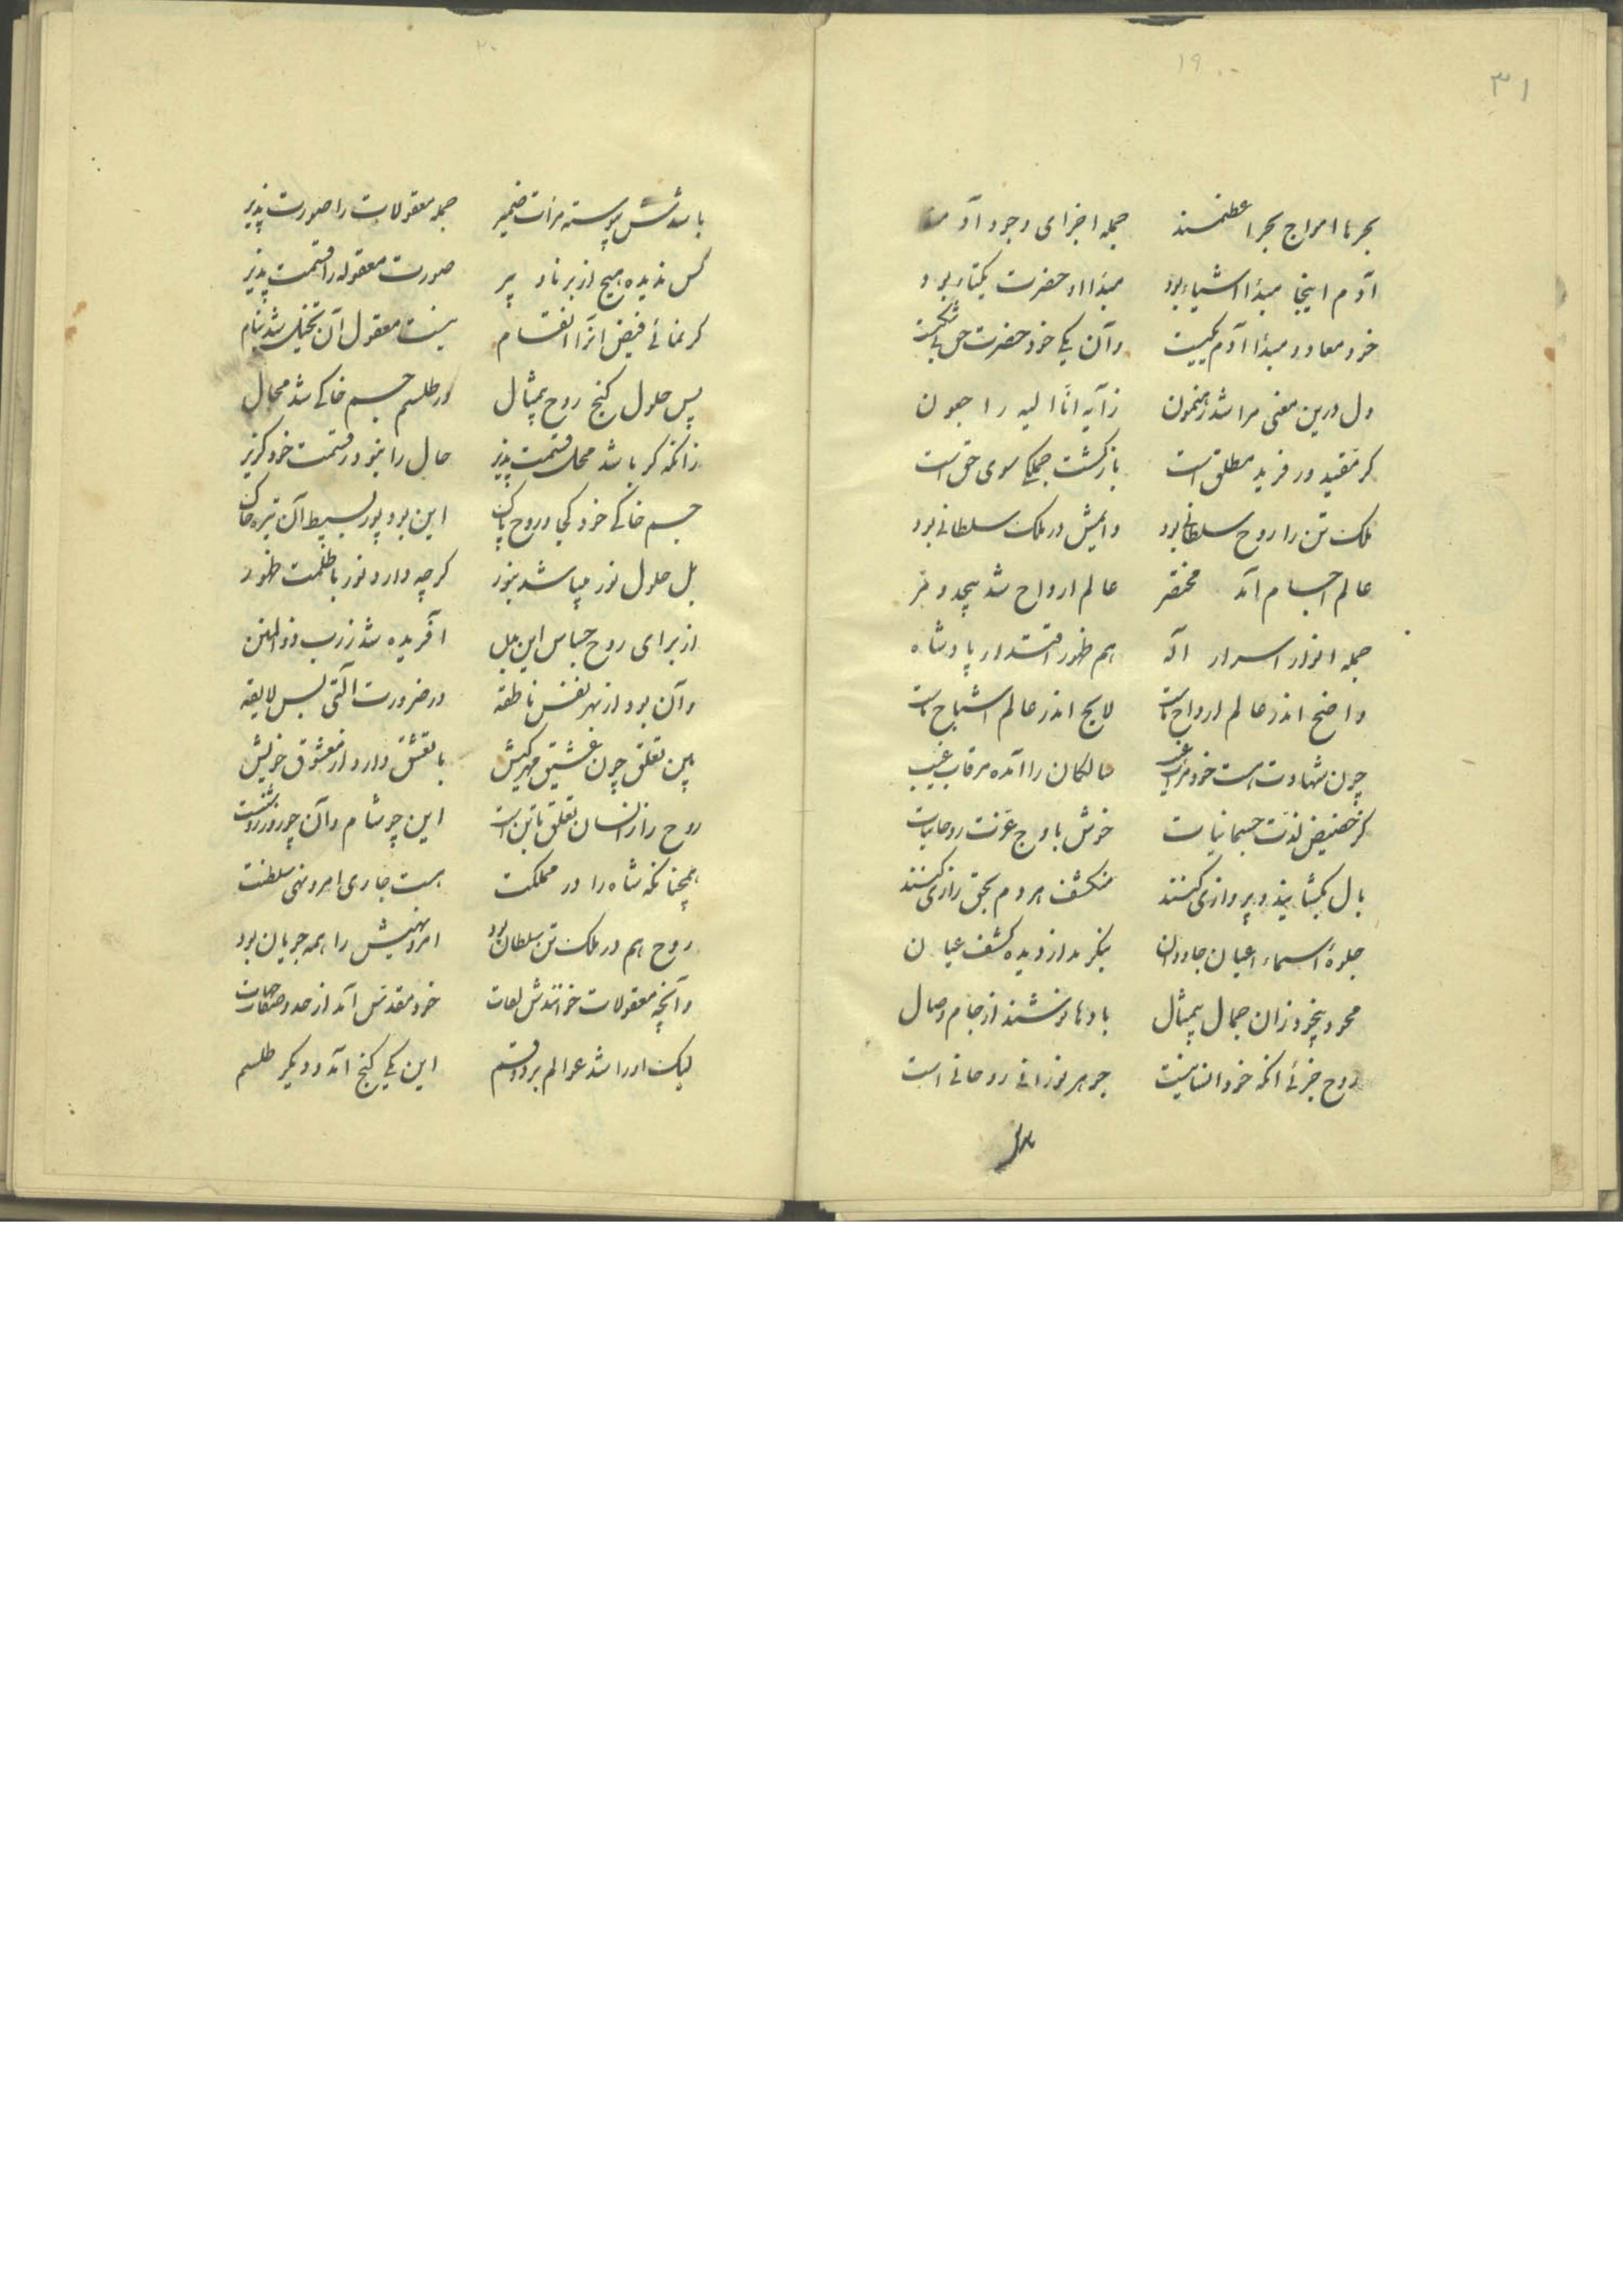 ۱۹
۳۱
بحر با امواج بحر اعظمند جمله اجزای وجود آدمند
آدم اینجا مبدأ اشیا بود مبدأ او حضرت یکتا بود
خود معاد و مبدأ آدم یکیست وآن یکی خود حضرت حق بی‌شکیست
دل درین معنی مرا شد رهنمون زآیه انا الیه راجعون
کر مقید ور فرید مطلق است بازکشت جملکی سوی حق است
ملک تن را روح سلطانی بود دایمش در ملک سلطانی بود
عالم اجسام آمد مختصر عالم ارواح شد بیحد و مر
جمله انوار اسرار اله هم ظهور اقتدار پادشاه
واضح اندر عالم ارواح ماست لایح اندر عالم اشباح ماست
چون شهادت هست خود مرآت غیب سالکان را آمده مرقاب غیب
کز حضیض لذت جسمانیات خوش باوج عزت روحانیات
بال بکشایند و پروازی کنند منکشف هر دم بحق رازی کنند
جلوهٔ اسماء اعیان جاودان بنکرند از دیده کشف عیان
محو و بیخود زان جمال بیمثال بادها نوشند از جام وصال
روح جزئی انکه خود انسانیست جوهر نورانی روحانی است
باشدش
۲۰
باشدش پیوسته مرات ضمیر جمله معقولات را صورت پذیر
کس ندیده هیچ از برنا و پیر صورت معقوله را قسمت پذیر
کر نمائی فیض انرا انقسام نیست معقول آن تخیل شد بنام
پس حلول کنج روح بیمثال در طلسم جسم خاکی شد محال
زانکه کر باشد محل قسمت پذیر حال را نبود ز قسمت خود کزیر
جسم خاکی خود کجا و روح پاک این بود نور بسیط آن تیره خاک
بل حلول نور میباشد بنور کرچه دارد نور با ظلمت ظهور
از برای روح حباس این بدن آفریده شد ز رب ذوالمنن
وآن بود از بهر نفس ناطقه در ضرورت آلتی بس لایقه
این تعلق چون عشیق مهرکیش با تعشق دارد از معشوق خویش
روح را زانسان تعلق با تن است این چو شام وآن چو روز روشنست
همچنانکه شاه را در مملکت هست جاری امر و نهی سلطنت
روح هم در ملک تن سلطان بود امر و نهیش را همه جریان بود
وآنچه معقولات خوانندش لغات خود مقدس آمد از حد و جهات
لیک او را شد عوالم بر دو قسم این یکی کنج آمد و دیکر طلسم